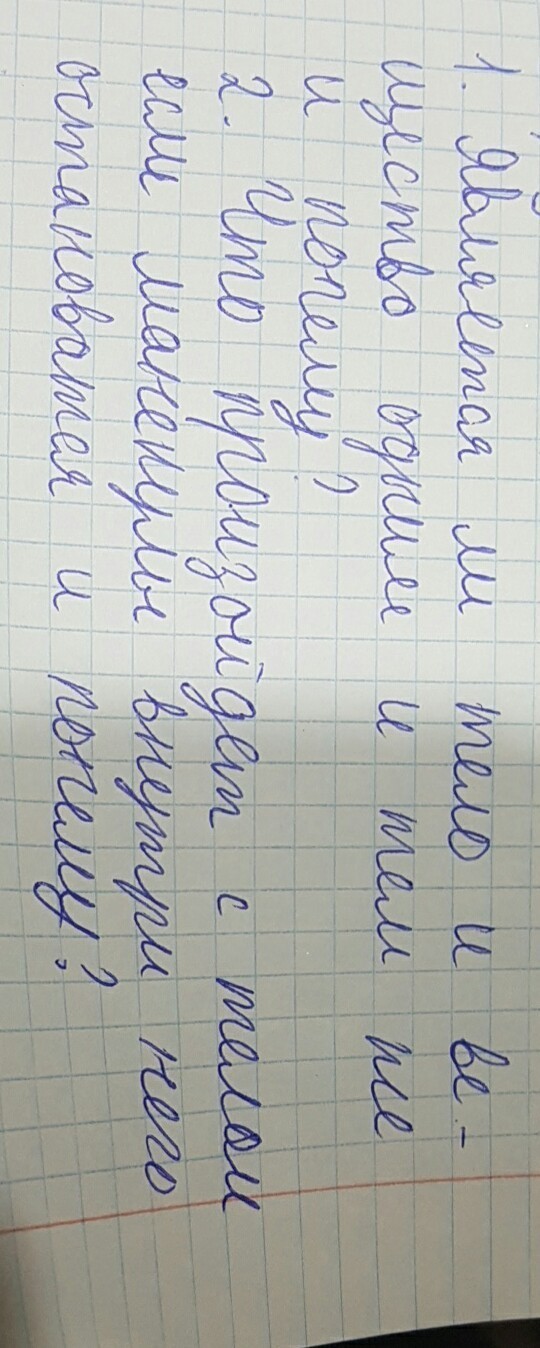 1. Является ли тело и ве-
щество одним и тем же
и почему?
2. Что произойдет с телом
если манекулы внутри него
остановатся и почему?